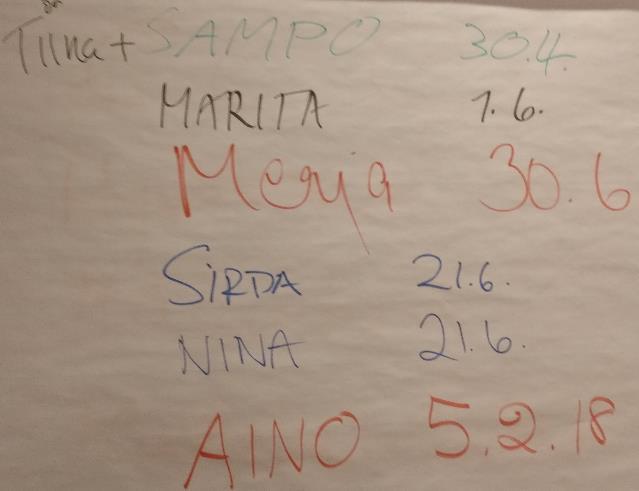 Tiina + SAMPO 30.4.
MARITA 1.6.
Merja 30.6
SIRDA 21.6.
NINA 21.6.
AINO 5.2.18